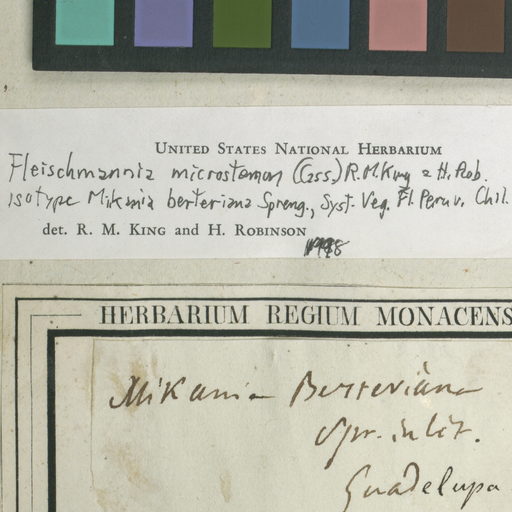 UNITED STATES NATIONAL HERBARIUM
Fleischmannia microstemon (Cass.) R.M.King & H. Rob.
isotype Mikania berteriana Spreng., Syst. Veg. Fl. Peruv. Chil.
det. R. M. KING and H. ROBINSON
HERBARIUM REGIUM MONACENS
Mikania Berteriana
Spr. in lit.
Guadelupa